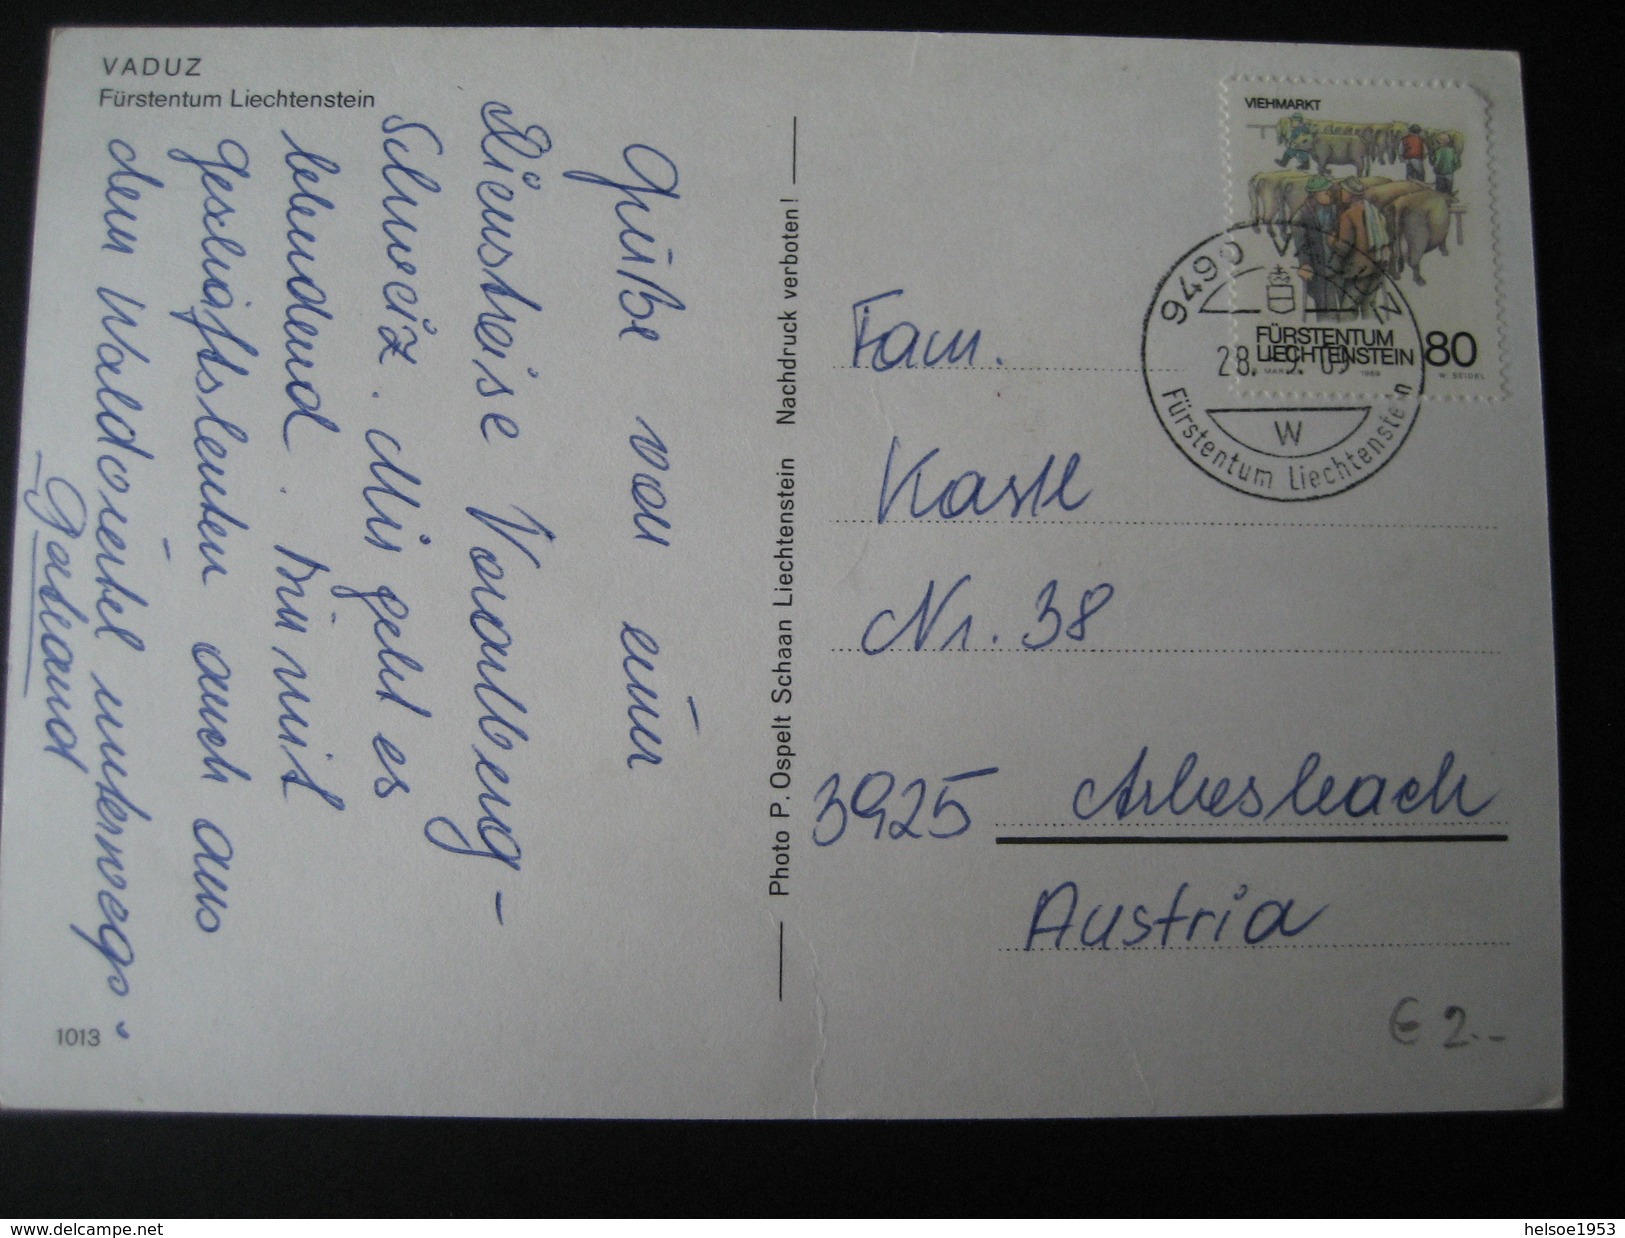 VADUZ
Fürstentum Liechtenstein
Grüße von einer
Dienstreise Vorarlberg-
Schweiz. Mir geht es
blendend. Bin mit
Geschäftsleuten auch aus
dem Waldviertel unterwegs.
1013
Photo P. Ospelt Schaan Liechtenstein Nachdruck verboten!
VIEHMARKT
FÜRSTENTUM
LIECHTENSTEIN 80
1989 W. SEIDEL
9490 VADUZ
28. 9. 89
W
Fürstentum Liechtenstein
Fam.
Kastl
Nr. 38
3925 Arbesbach
Austria
€ 2.-
www.delcampe.net
helsoe1953